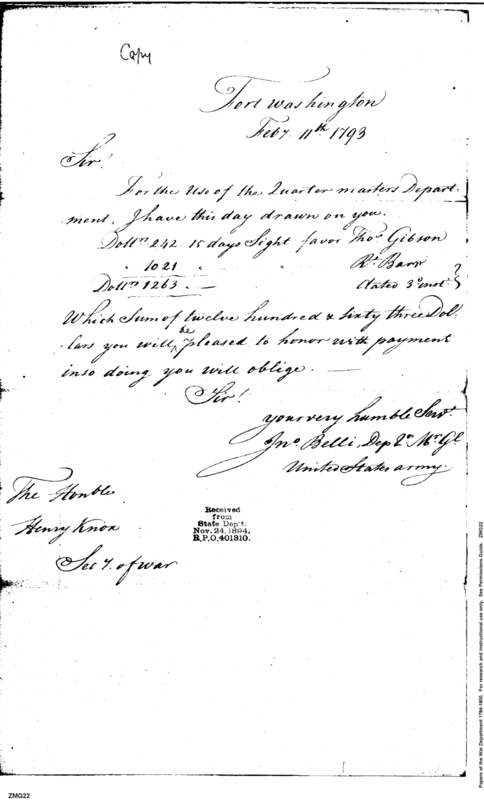 Copy
Fort Washington
Feby. 11th 1793
Sir!
For the Use of the Quarter masters Depart-
ment, I have this day drawn on you.
Dollrs 242. 15 days Sight favor Thos. Gibson
" 1021 " " Rt. Barr
Dollrs 1263. — dated 3d inst. }
Which Sum of twelve hundred & sixty three Dol-
lars you will be pleased to honor with payment
in so doing you will oblige. —
Sir!
your very humble Servt.
Jno. Belli, Dep Qr. Mr. Gl.
United States army.
The Honble
Henry Knox
Secy. of war
Received
from
State Dep't.
Nov. 24, 1894,
R.P.O. 401310.
ZMG22
Papers of the War Department 1784-1800. For research and instructional use only. See Permissions Guide. ZMG22